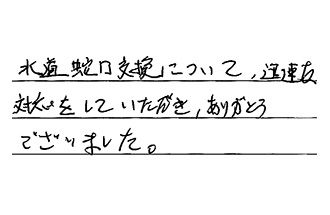 水道蛇口交換について,迅速な
対応をしていただき,ありがとう
ございました。